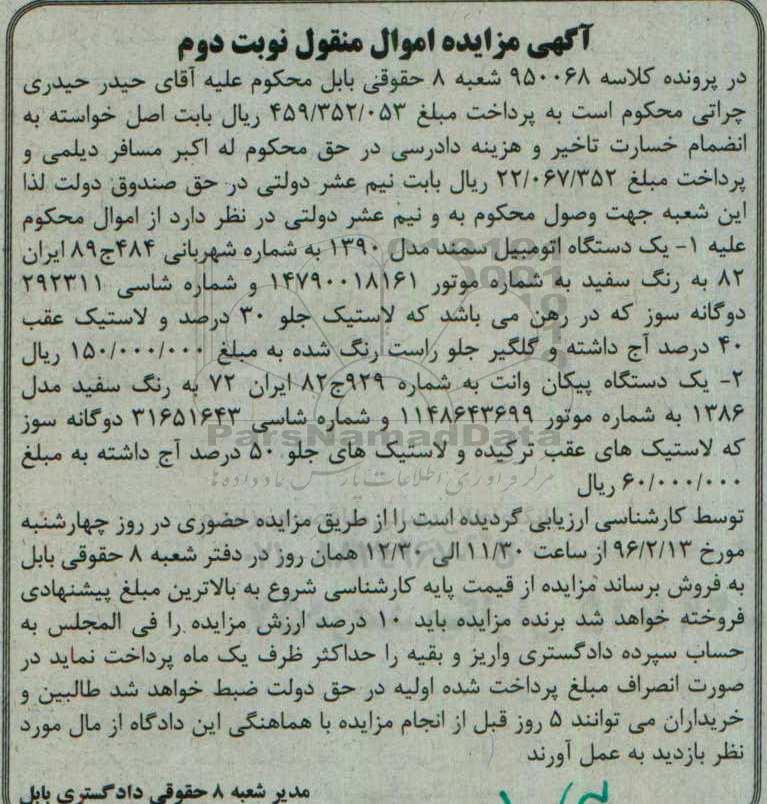 آگهی مزایده اموال منقول نوبت دوم
در پرونده کلاسه ۹۵۰۰۶۸ شعبه ۸ حقوقی بابل محکوم علیه آقای حیدر حیدری
چراتی محکوم است به پرداخت مبلغ ۴۵۹/۳۵۲/۰۵۳ ریال بابت اصل خواسته به
انضمام خسارت تاخیر و هزینه دادرسی در حق محکوم له اکبر مسافر دیلمی و
پرداخت مبلغ ۲۲/۰۶۷/۳۵۲ ریال بابت نیم عشر دولتی در حق صندوق دولت لذا
این شعبه جهت وصول محکوم به و نیم عشر دولتی در نظر دارد از اموال محکوم
علیه ۱- یک دستگاه اتومبیل سمند مدل ۱۳۹۰ به شماره شهربانی ۴۸۴ج۸۹ ایران
۸۲ به رنگ سفید به شماره موتور ۱۴۷۹۰۰۱۸۱۶۱ و شماره شاسی ۲۹۲۳۱۱
دوگانه سوز که در رهن می باشد که لاستیک جلو ۳۰ درصد و لاستیک عقب
۴۰ درصد آج داشته و گلگیر جلو راست رنگ شده به مبلغ ۱۵۰/۰۰۰/۰۰۰ ریال
۲- یک دستگاه پیکان وانت به شماره ۹۲۹ج۸۲ ایران ۷۲ به رنگ سفید مدل
۱۳۸۶ به شماره موتور ۱۱۴۸۶۴۳۶۹۹ و شماره شاسی ۳۱۶۵۱۶۴۳ دوگانه سوز
ParsNamadData
که لاستیک های عقب ترکیده و لاستیک های جلو ۵۰ درصد آج داشته به مبلغ
مرکز فرآوری اطلاعات پارس نماد داده ها
۶۰/۰۰۰/۰۰۰ ریال
توسط کارشناسی ارزیابی گردیده است را از طریق مزایده حضوری در روز چهارشنبه
مورخ ۹۶/۲/۱۳ از ساعت ۱۱/۳۰ الی ۱۲/۳۰ همان روز در دفتر شعبه ۸ حقوقی بابل
به فروش برساند مزایده از قیمت پایه کارشناسی شروع به بالاترین مبلغ پیشنهادی
فروخته خواهد شد برنده مزایده باید ۱۰ درصد ارزش مزایده را فی المجلس به
حساب سپرده دادگستری واریز و بقیه را حداکثر ظرف یک ماه پرداخت نماید در
صورت انصراف مبلغ پرداخت شده اولیه در حق دولت ضبط خواهد شد طالبین و
خریداران می توانند ۵ روز قبل از انجام مزایده با هماهنگی این دادگاه از مال مورد
نظر بازدید به عمل آورند
مدیر شعبه ۸ حقوقی دادگستری بابل